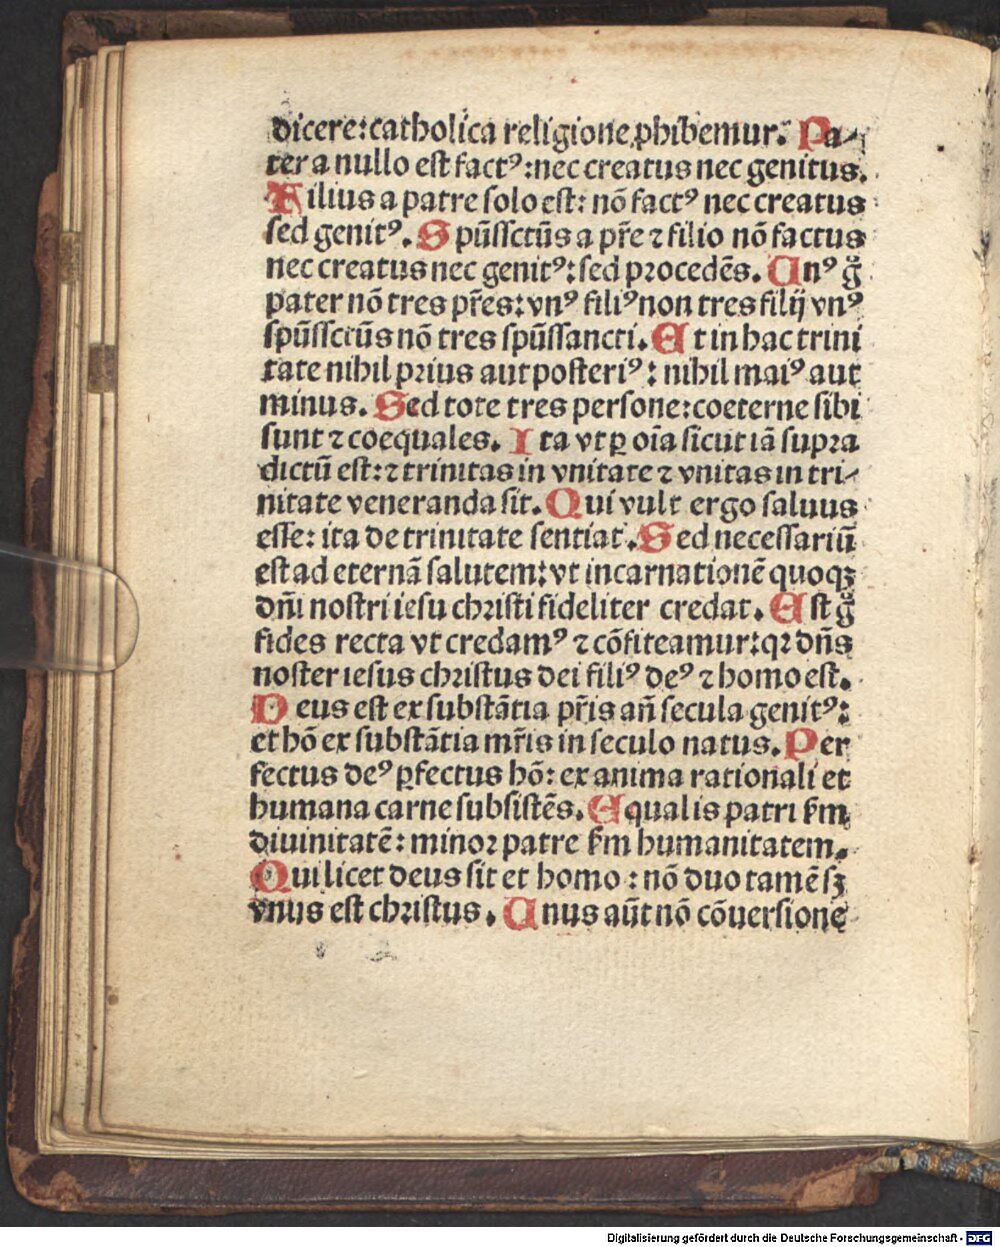 dicere: catholica religione ꝓhibemur. Pa-
ter a nullo est factꝰ: nec creatus nec genitus.
Filius a patre solo est: nō factꝰ nec creatus
sed genitꝰ. Spūssctūs a pr̄e ⁊ filio nō factus
nec creatus nec genitꝰ: sed procedēs. Unꝰ g̊
pater nō tres pr̄es: vnꝰ filiꝰ non tres filij vnꝰ
spūssctūs nō tres spūssancti. Et in hac trini
tate nihil prius aut posteriꝰ: nihil maiꝰ aut
minus. Sed tote tres persone: coeterne sibi
sunt ⁊ coequales. Ita vt ꝑ oīa sicut iā supra
dictū est: ⁊ trinitas in vnitate ⁊ vnitas in tri-
nitate veneranda sit. Qui vult ergo saluus
esse: ita de trinitate sentiat. Sed necessariū
est ad eternā salutem: vt incarnationē quoqꝫ
dn̄i nostri iesu christi fideliter credat. Est g̊
fides recta vt credamꝰ ⁊ cōfiteamur: qꝛ dn̄s
noster iesus christus dei filiꝰ deꝰ ⁊ homo est.
Deus est ex substātia pr̄is an̄ secula genitꝰ:
et hō ex substātia mr̄is in seculo natus. Per
fectus deꝰ ꝑfectus hō: ex anima rationali et
humana carne subsistēs. Equalis patri ẜm
diuinitatē: minor patre ẜm humanitatem.
Qui licet deus sit et homo: nō duo tamē sꝫ
vnus est christus. Unus aūt nō cōuersione
Digitalisierung gefördert durch die Deutsche Forschungsgemeinschaft - DFG